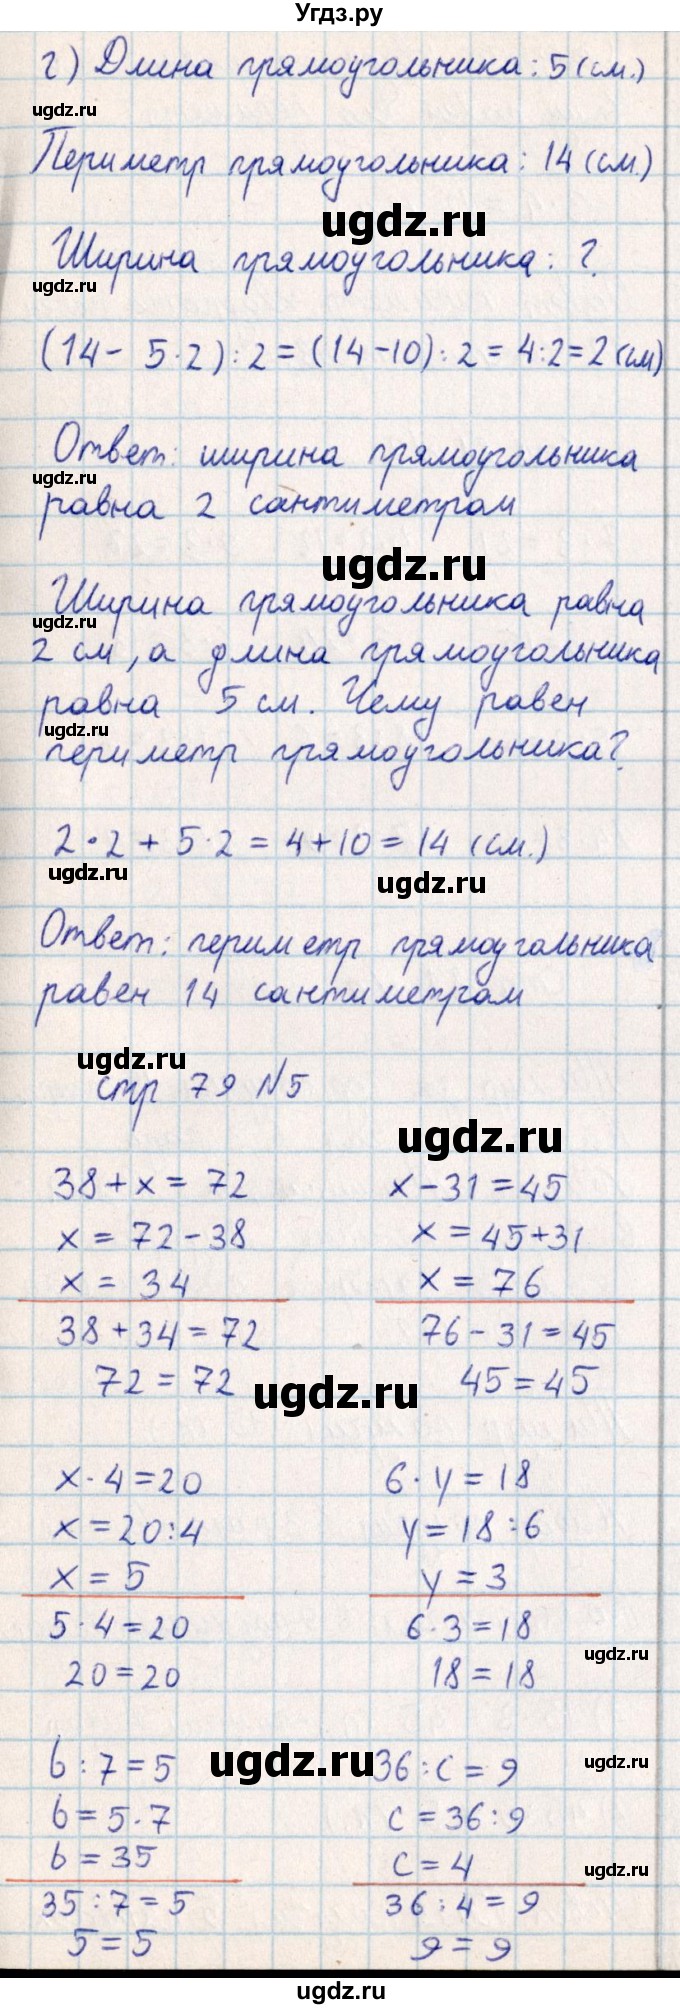 Угдз.ру
г) Длина прямоугольника: 5 (см.)
ugdz.ru
Периметр прямоугольника: 14 (см.)
ugdz.ru
Ширина прямоугольника: ?
ugdz.ru
(14 - 5·2) : 2 = (14 - 10) : 2 = 4 : 2 = 2 (см)
Ответ: ширина прямоугольника
ugdz.ru
равна 2 сантиметрам
ugdz.ru
Ширина прямоугольника равна
ugdz.ru
2 см, а длина прямоугольника
равна 5 см. Чему равен
ugdz.ru
периметр прямоугольника?
2·2 + 5·2 = 4 + 10 = 14 (см.)
ugdz.ru ugdz.ru
Ответ: периметр прямоугольника
равен 14 сантиметрам
ugdz.ru
стр 79 №5
ugdz.ru
38 + x = 72 x - 31 = 45
x = 72 - 38 x = 45 + 31
x = 34 x = 76
38 + 34 = 72 76 - 31 = 45
72 = 72 45 = 45
ugdz.ru
x · 4 = 20 6 · y = 18
x = 20 : 4 y = 18 : 6
x = 5 y = 3
5 · 4 = 20 6 · 3 = 18
ugdz.ru
20 = 20 18 = 18
в : 7 = 5 36 : с = 9
ugdz.ru ugdz.ru
в = 5 · 7 с = 36 : 9
в = 35 с = 4
ugdz.ru
35 : 7 = 5 36 : 4 = 9
5 = 5 9 = 9
ugdz.ru